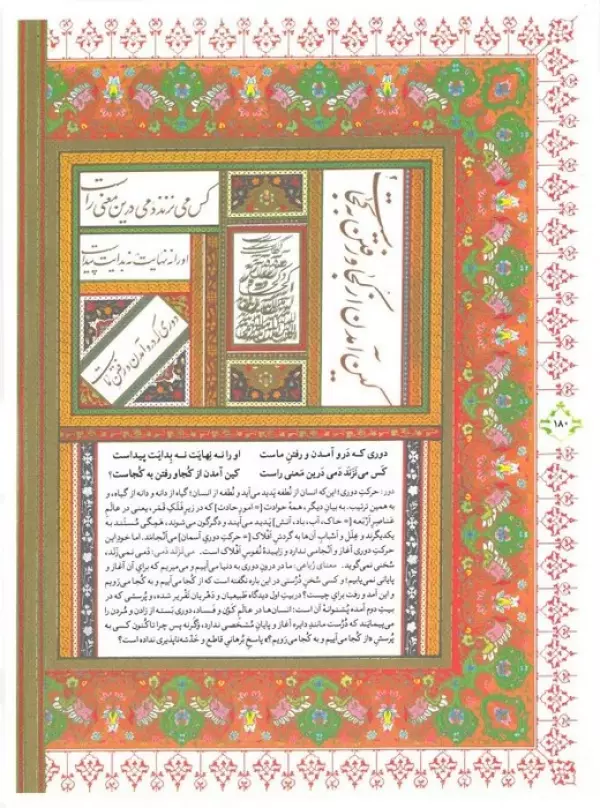 کس می نزند دمی درین معنی راست
کین آمدن از کجا و رفتن به کجاست
او را نه نهایت نه بدایت پیداست
دوری که درو آمدن و رفتن ماست
۱۸۰
دوری کـه دَرو آمـدن و رفتنِ ماست او را نـه نِهایَت نـه بِدایَت پیداست
کَس می نَزَنَد دَمی دَرین مَعنی راست کین آمدن از کُجا و رفتن به کُجاست؟
دور: حرکتِ دوری؛ این‌که انسان از نُطفه پَدید می‌آید و نُطفه از انسان؛ گیاه از دانه و دانه از گیاه، و
به همین ترتیب. به بیانِ دیگر، همهٔ حوادث [= امورِ حادث] که در زیرِ فَلَکِ قَمَر، یعنی در عالَمِ
عَناصِرِ اَرْبَعه [= خاک، آب، باد، آتش] پَدید می‌آیند و دگرگون می‌شوند، هَمِگی مُستَند به
یکدیگرند و عِلَل و اَسْبابِ آن‌ها به گردشِ اَفْلاک [= حرکتِ دوریِ آسمان] می‌اَنجامَد. اما خودِ این
حرکتِ دوری آغاز و اَنْجامی ندارد و زاییدهٔ نُفوسِ اَفْلاک است. می‌نَزَنَد دَمی: دَمی نمی‌زَنَد،
سُخنی نمی‌گوید. معنای رُباعی: ما در درونِ دوری به دنیا می‌آییم و می‌میریم که برایِ آن آغاز و
پایانی نمی‌یابیم؛ و کسی سُخنِ دُرُستی در این باره نگفته است که از کُجا می‌آییم و به کُجا می‌رَویم
و این آمد و رفت برایِ چیست؟ در بیتِ اول دیدگاهِ طَبیعیان و دَهْریان تَقْریر شده، و پُرسشی که در
بیتِ دوم آمده پُشتوانهٔ آن است؛ انسان‌ها در عالَمِ کَوْن و فَساد، دوری بَسته از زادن و مُردن را
می‌پیمایند که دُرُست مانندِ دایره آغاز و پایانِ مُشَخَّصی ندارد، وَگرنه پس چرا تاکُنون کسی به
پُرسشِ «از کُجا می‌آییم و به کُجا می‌رَویم؟» پاسخِ بُرهانیِ قاطِع و خَدْشه‌ناپذیری نداده است؟